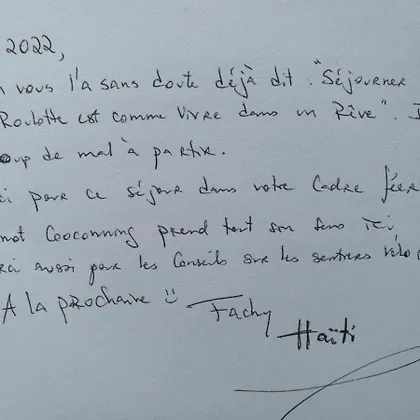 2022,
vous l'a sans doute déjà dit : "Séjourner
Roulotte est comme vivre dans un Rêve".
oup de mal à partir.
ci pour ce séjour dans votre Cadre féer
mot Coocooning prend tout son sens ici,
rci aussi pour les Conseils sur les sentiers vélo
A la prochaine ☺ Fachy
Haïti